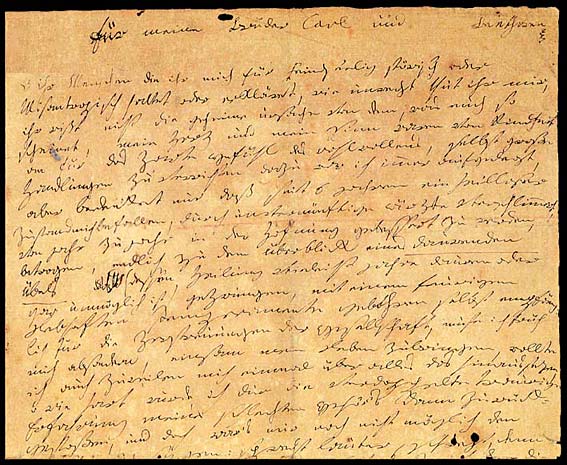 für meine Brüder Carl und Beethowen
O ihr Menschen die ihr mich für Feindseelig störisch oder
Misantropisch haltet oder erkläret, wie unrecht thut ihr mir,
ihr wißt nicht die geheime urßache von dem, was euch so
scheinet, mein Herz und mein Sinn waren von Kindheit
an für das Zarte Gefühl des wohlwollens, selbst große
Handlungen zu verrichten dazu war ich immer aufgelegt,
aber bedenket nur daß seit 6 jahren ein heilloser
Zustand mich befallen, durch unvernünftige ärzte verschlimmert,
von jahr zu jahr in der Hofnung gebessert zu werden,
betrogen, endlich zu dem überblick eines daurenden
Übels dessen Heilung vieleicht jahre dauren oder
gar unmöglich ist, gezwungen, mit einem feuerigen
Lebhaften Temperamente gebohren selbst empfäng-
lich für die Zerstreuungen der Gesellschaft, muste ich früh
mich absondern, einsam mein Leben zubringen, wollte
ich auch zuweilen mich einmal über alles das hinaussezen,
o wie hart wurde ich dur die verdoppelte traurige
Erfahrung meines schlechten Gehör's dann zurück-
gestoßen, und doch war's mir noch nicht möglich den
sagen: sprecht lauter, schreyt, denn